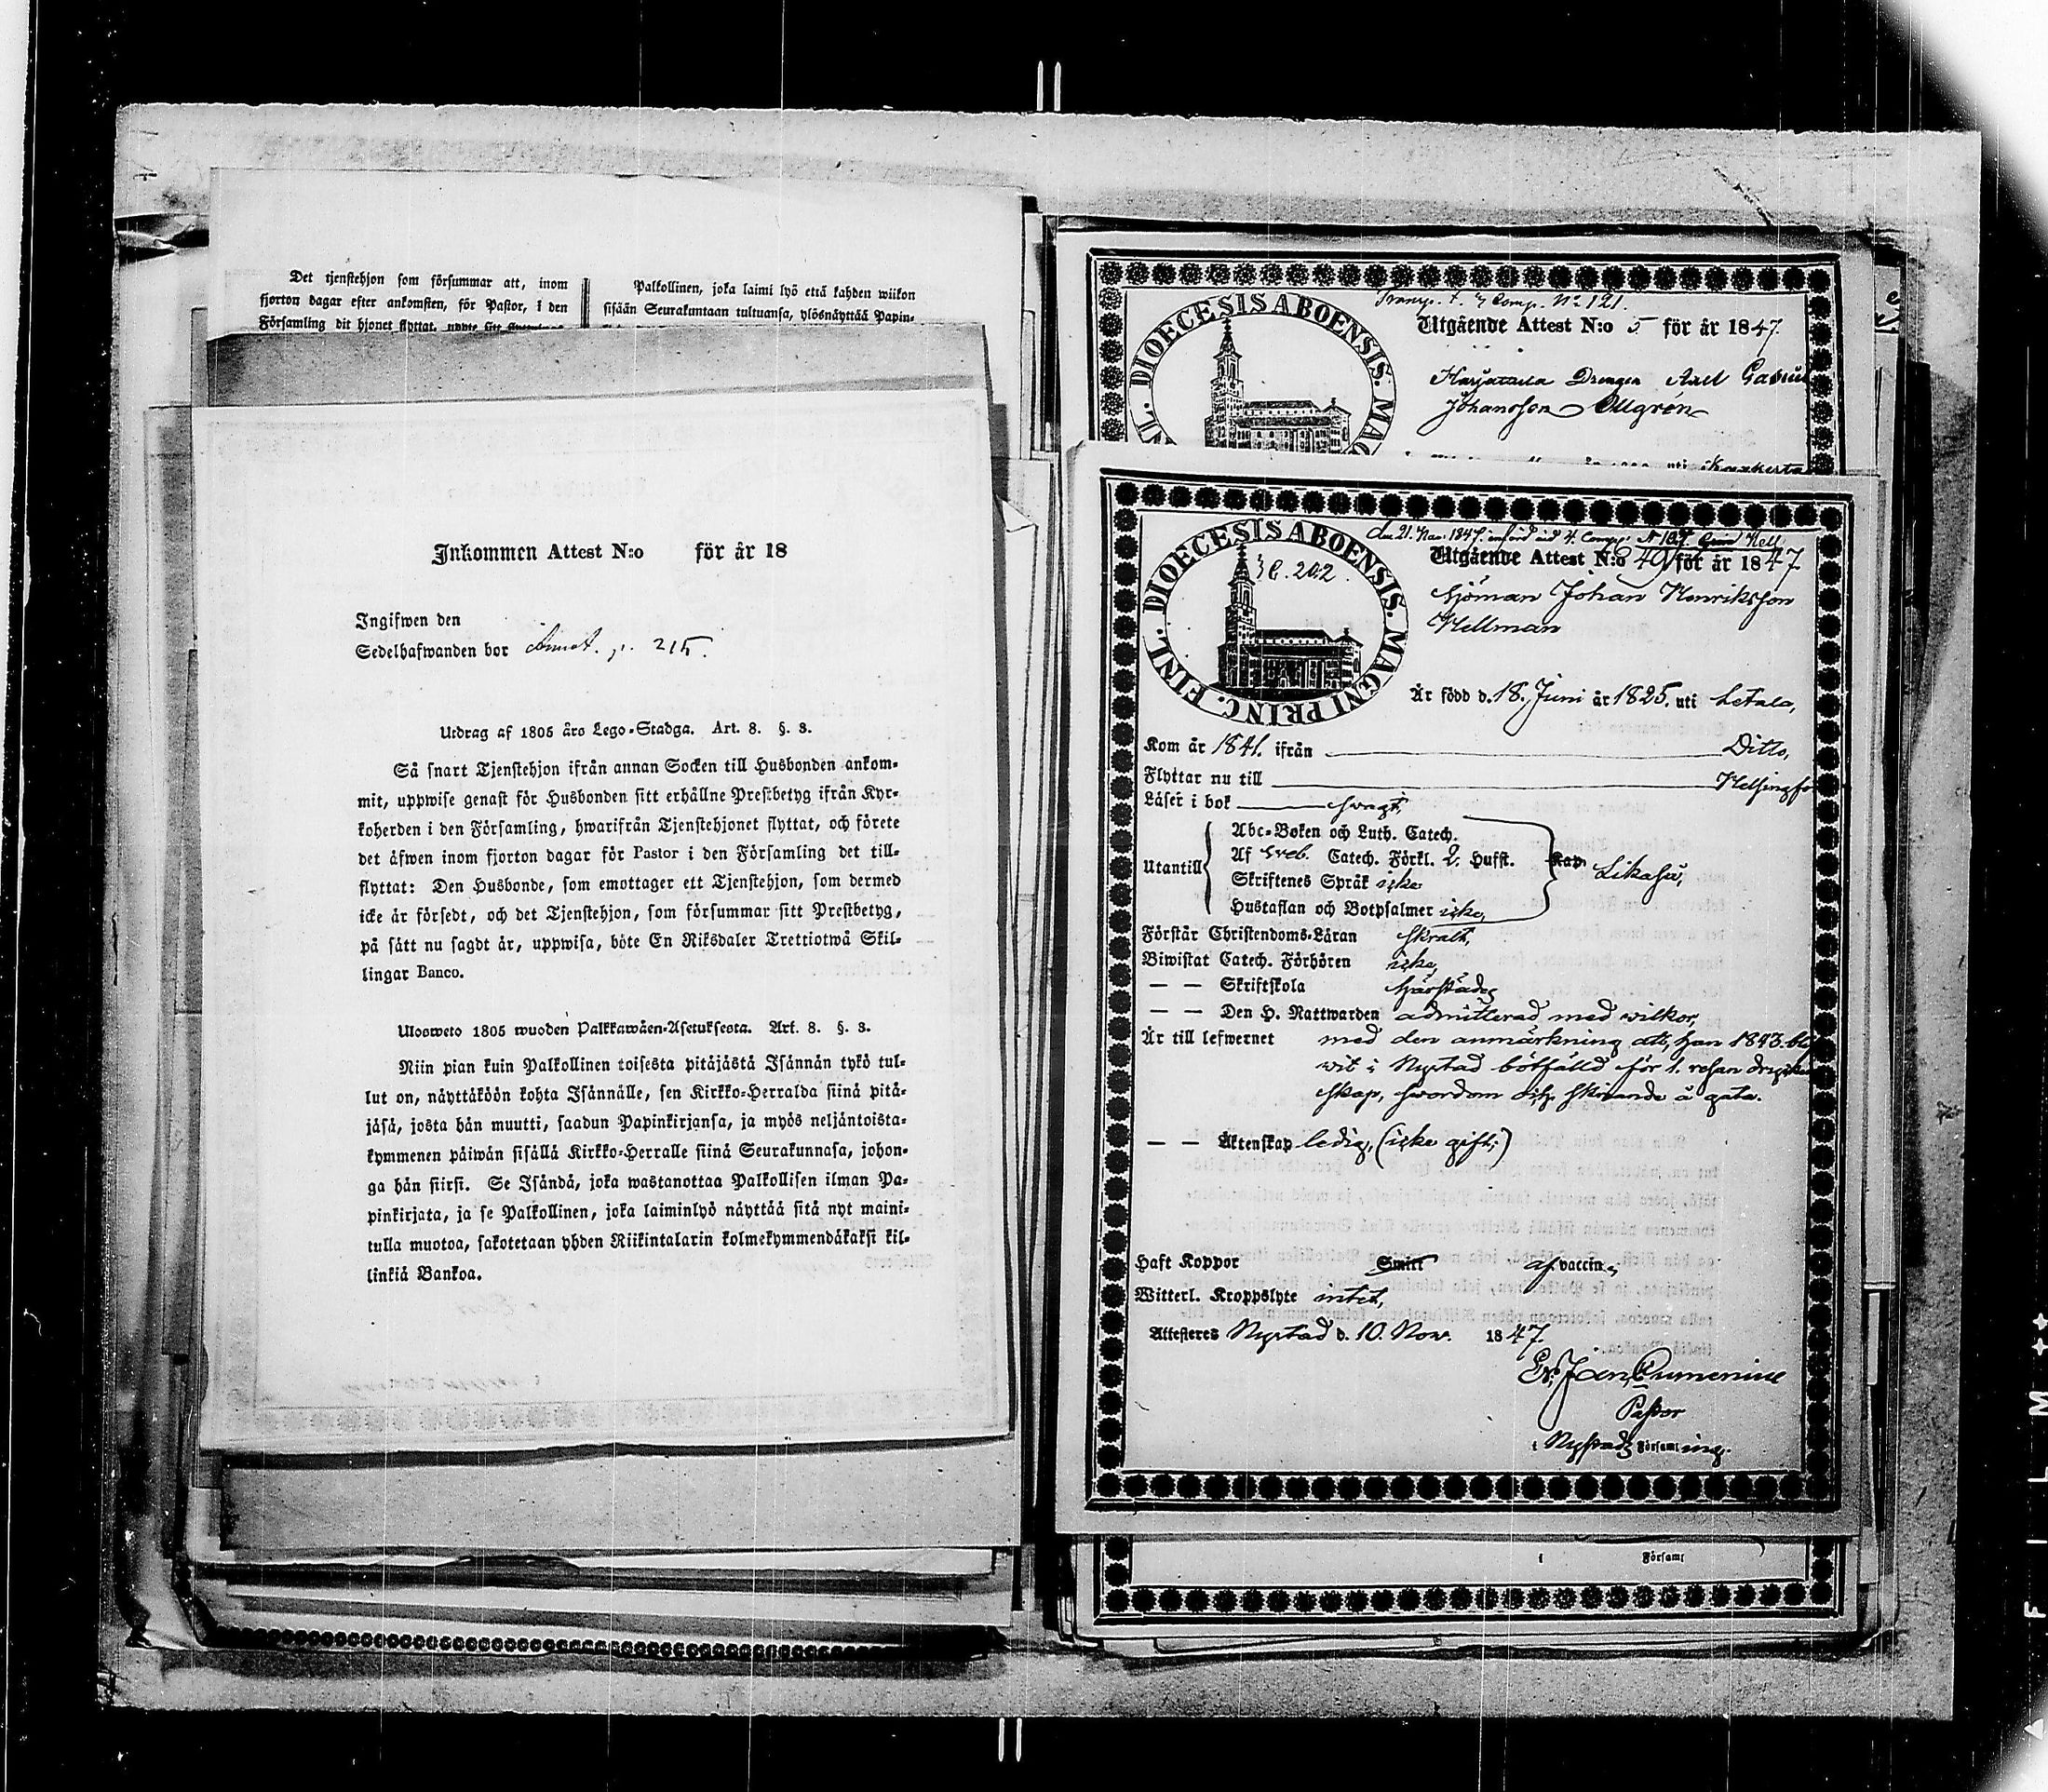 Det tjenstehjon som försummar att, inom
fjorton dagar efter ankomsten, för Pastor, i den
Församling dit hjonet flyttat,
Palkollinen, joka laimi lyö että kahden wiikon
sisään Seurakuntaan tultuansa, ylösnäyttää Papin-
Inkommen Attest N:o för år 18
Ingifwen den
Sedelhafwanden bor p. 215.
Utdrag af 1805 års Lego-Stadga. Art. 8. §. 3.
Så snart Tjenstehjon ifrån annan Socken till Husbonden ankom-
mit, uppwise genast för Husbonden sitt erhållne Prestbetyg ifrån Kyr-
koherden i den Församling, hwarifrån Tjenstehjonet flyttat, och förete
det äfwen inom fjorton dagar för Pastor i den Församling det till-
flyttat: Den Husbonde, som emottager ett Tjenstehjon, som dermed
icke är försedt, och det Tjenstehjon, som försummar sitt Prestbetyg,
på sätt nu sagdt är, uppwisa, böte En Riksdaler Trettiotwå Skil-
lingar Banco.
Ulosweto 1805 wuoden Palkkawäen-Asetuksesta. Art. 8. §. 3.
Niin pian kuin Palkollinen toisesta pitäjästä Isännän tykö tul-
lut on, näyttäköön kohta Isännälle, sen Kirkko-Herralda siinä pitä-
jäsä, josta hän muutti, saadun Papinkirjansa, ja myös neljäntoista-
kymmenen päiwän sisällä Kirkko-Herralle siinä Seurakunnasa, johon-
ga hän siirsi. Se Isändä, joka wastanottaa Palkollisen ilman Pa-
pinkirjata, ja se Palkollinen, joka laiminlyö näyttää sitä nyt maini-
tulla muotoa, sakotetaan yhden Riikintalarin kolmekymmendäkaksi kil-
linkiä Bankoa.
Transp. t. 4 Comp. No 121.
DIOECESIS ABOENSIS. MAG
Utgående Attest N:o 5 för år 1847.
Drengen Axel
Johansson
den 21. Nov. 1847. införd vid 4. Comp. N 107.
DIOECESIS ABOENSIS. MAGNI PRINC. FINL.
202.
Utgående Attest N:o 49 för år 1847
Sjöman Johan Henriksson
Hellman
Är född d. 18. Juni år 1825. uti Letala,
Kom år 1841. ifrån Ditto,
Flyttar nu till Helsingfo
Läser i bok swagt,
Utantill
Abc-Boken och Luth. Catech.
Af Sveb. Catech. Förkl. 2. Hufst.
Skriftenes Språk icke
Hustaflan och Botpsalmer icke,
Kap. Likaså,
Förstår Christendoms-Läran Skralt,
Biwistat Catech. Förhören icke,
— — Skriftskola härstädes
— — Den H. Nattwarden admitterad med wilkor,
Är till lefwernet med den anmärkning att, han 1843. bli
wit i Nystad bötfälld för 1. resan drycken
skap, swordom och skriande å gata.
— — Äktenskap ledig, (icke gift,)
Haft Koppor Smitt af vaccin,
Witterl. Kroppslyte intet,
Attesteras Nystad d. 10. Nov. 1847.
Pastor
i Nystads Församling.
i Församl
FILM